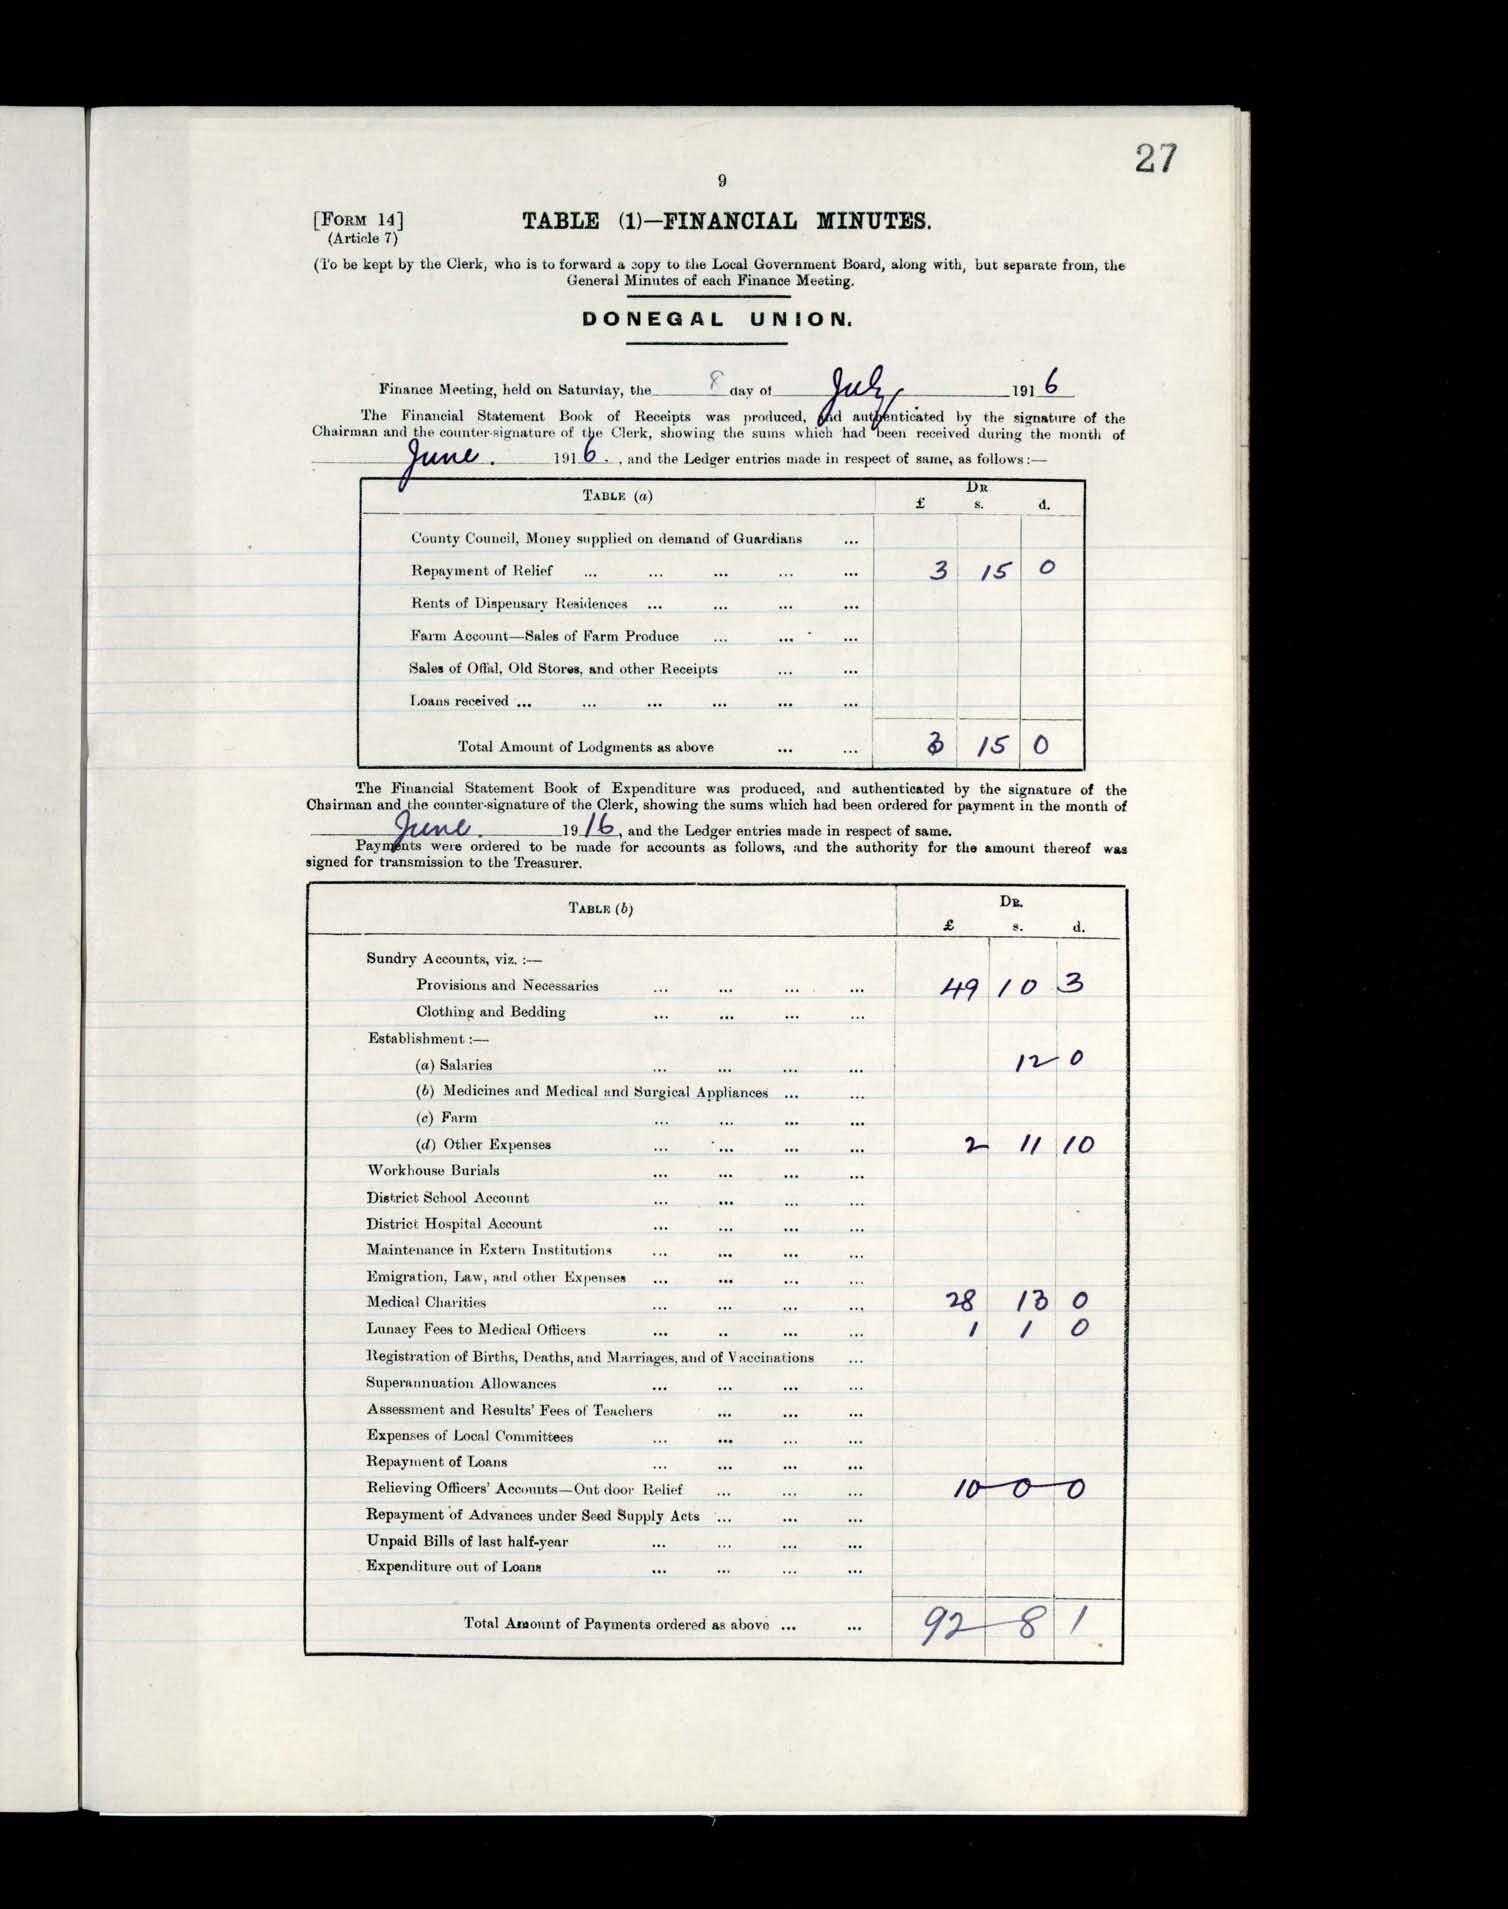 27
9
[FORM 14] TABLE (1)—FINANCIAL MINUTES.
(Article 7)
(To be kept by the Clerk, who is to forward a copy to the Local Government Board, along with, but separate from, the
General Minutes of each Finance Meeting.
DONEGAL UNION.
Finance Meeting, held on Saturday, the 8 day of July 1916
The Financial Statement Book of Receipts was produced, and authenticated by the signature of the
Chairman and the counter-signature of the Clerk, showing the sums which had been received during the month of
June. 1916. , and the Ledger entries made in respect of same, as follows:—
TABLE (a) DR
£ s. d.
County Council, Money supplied on demand of Guardians ...
Repayment of Relief ... ... ... ... ... 3 15 0
Rents of Dispensary Residences ... ... ... ...
Farm Account—Sales of Farm Produce ... ... ...
Sales of Offal, Old Stores, and other Receipts ... ...
Loans received ... ... ... ... ... ...
Total Amount of Lodgments as above ... ... 3 15 0
The Financial Statement Book of Expenditure was produced, and authenticated by the signature of the
Chairman and the counter-signature of the Clerk, showing the sums which had been ordered for payment in the month of
June. 1916, and the Ledger entries made in respect of same.
Payments were ordered to be made for accounts as follows, and the authority for the amount thereof was
signed for transmission to the Treasurer.
TABLE (b) DR.
£ s. d.
Sundry Accounts, viz. :—
Provisions and Necessaries ... ... ... ... 49 10 3
Clothing and Bedding ... ... ... ...
Establishment :—
(a) Salaries ... ... ... ... 12 0
(b) Medicines and Medical and Surgical Appliances ... ...
(c) Farm ... ... ... ...
(d) Other Expenses ... ... ... ... 2 11 10
Workhouse Burials ... ... ... ...
District School Account ... ... ... ...
District Hospital Account ... ... ... ...
Maintenance in Extern Institutions ... ... ... ...
Emigration, Law, and other Expenses ... ... ... ...
Medical Charities ... ... ... ... 28 13 0
Lunacy Fees to Medical Officers ... .. ... ... 1 1 0
Registration of Births, Deaths, and Marriages, and of Vaccinations ...
Superannuation Allowances ... ... ... ...
Assessment and Results' Fees of Teachers ... ... ...
Expenses of Local Committees ... ... ... ...
Repayment of Loans ... ... ... ...
Relieving Officers' Accounts—Out door Relief ... ... ... 10 0 0
Repayment of Advances under Seed Supply Acts ... ... ...
Unpaid Bills of last half-year ... ... ... ...
Expenditure out of Loans ... ... ... ...
Total Amount of Payments ordered as above ... ... 92 8 1